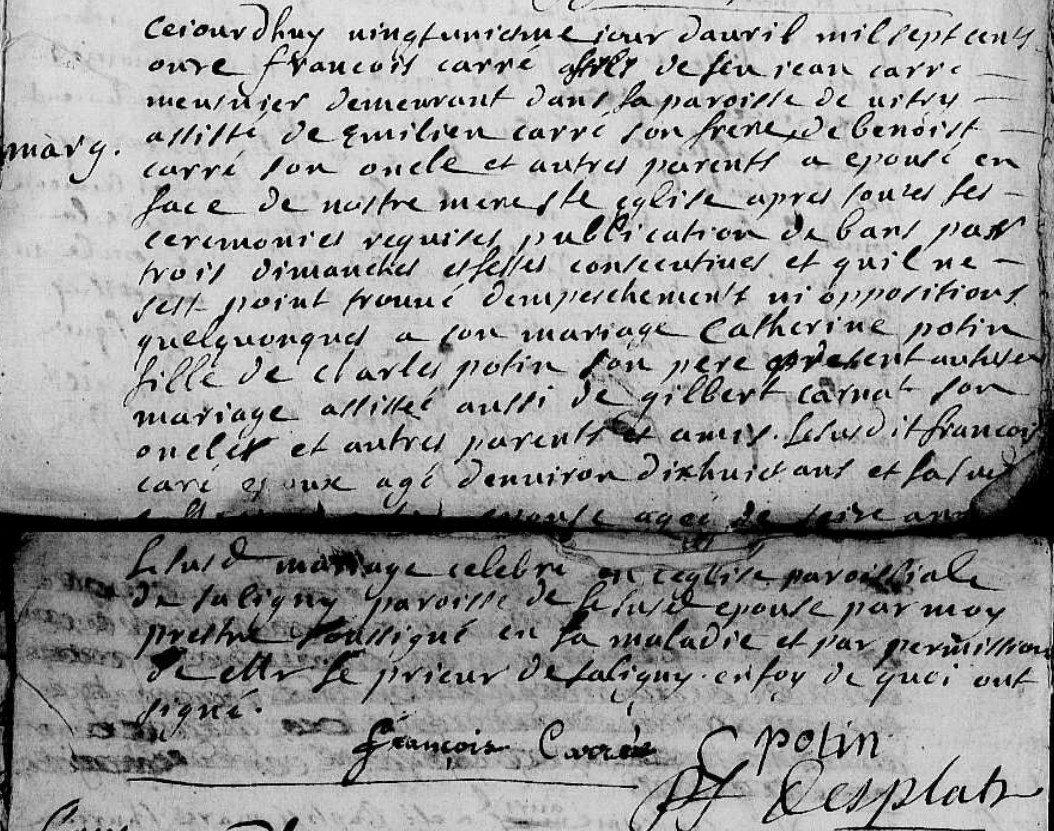 cejourdhuy vingtunieme jour dauril mil sept cents
onze françois carré fils de feu jean carre
meusnier demeurant dans la paroisse de vitry
assisté de Emilien carré son frere, de benoist
marg.
carré son oncle et autres parents a epousé en
face de nostre mere ste eglise apres toutes les
ceremonies requises publication de bans par
trois dimanches et festes consecutiues et quil ne
sest point trouué dempeschement ni oppositions
quelquonques a son mariage Catherine potin
fille de charles potin son pere present audit
mariage assistée aussi de gilbert carnat son
oncle et autres parents et amis. le susdit françois
caré epoux agé denuiron dixhuict ans et la sud
epouse agée de seize ans
le susd mariage celebré en leglise paroissiale
de saligny paroisse de la susd epouse par moy
prestre soussigné en la maladie et par permission
de Mr le prieur de saligny. en foy de quoi ont
signé.
françois Carré C potin
Desplats